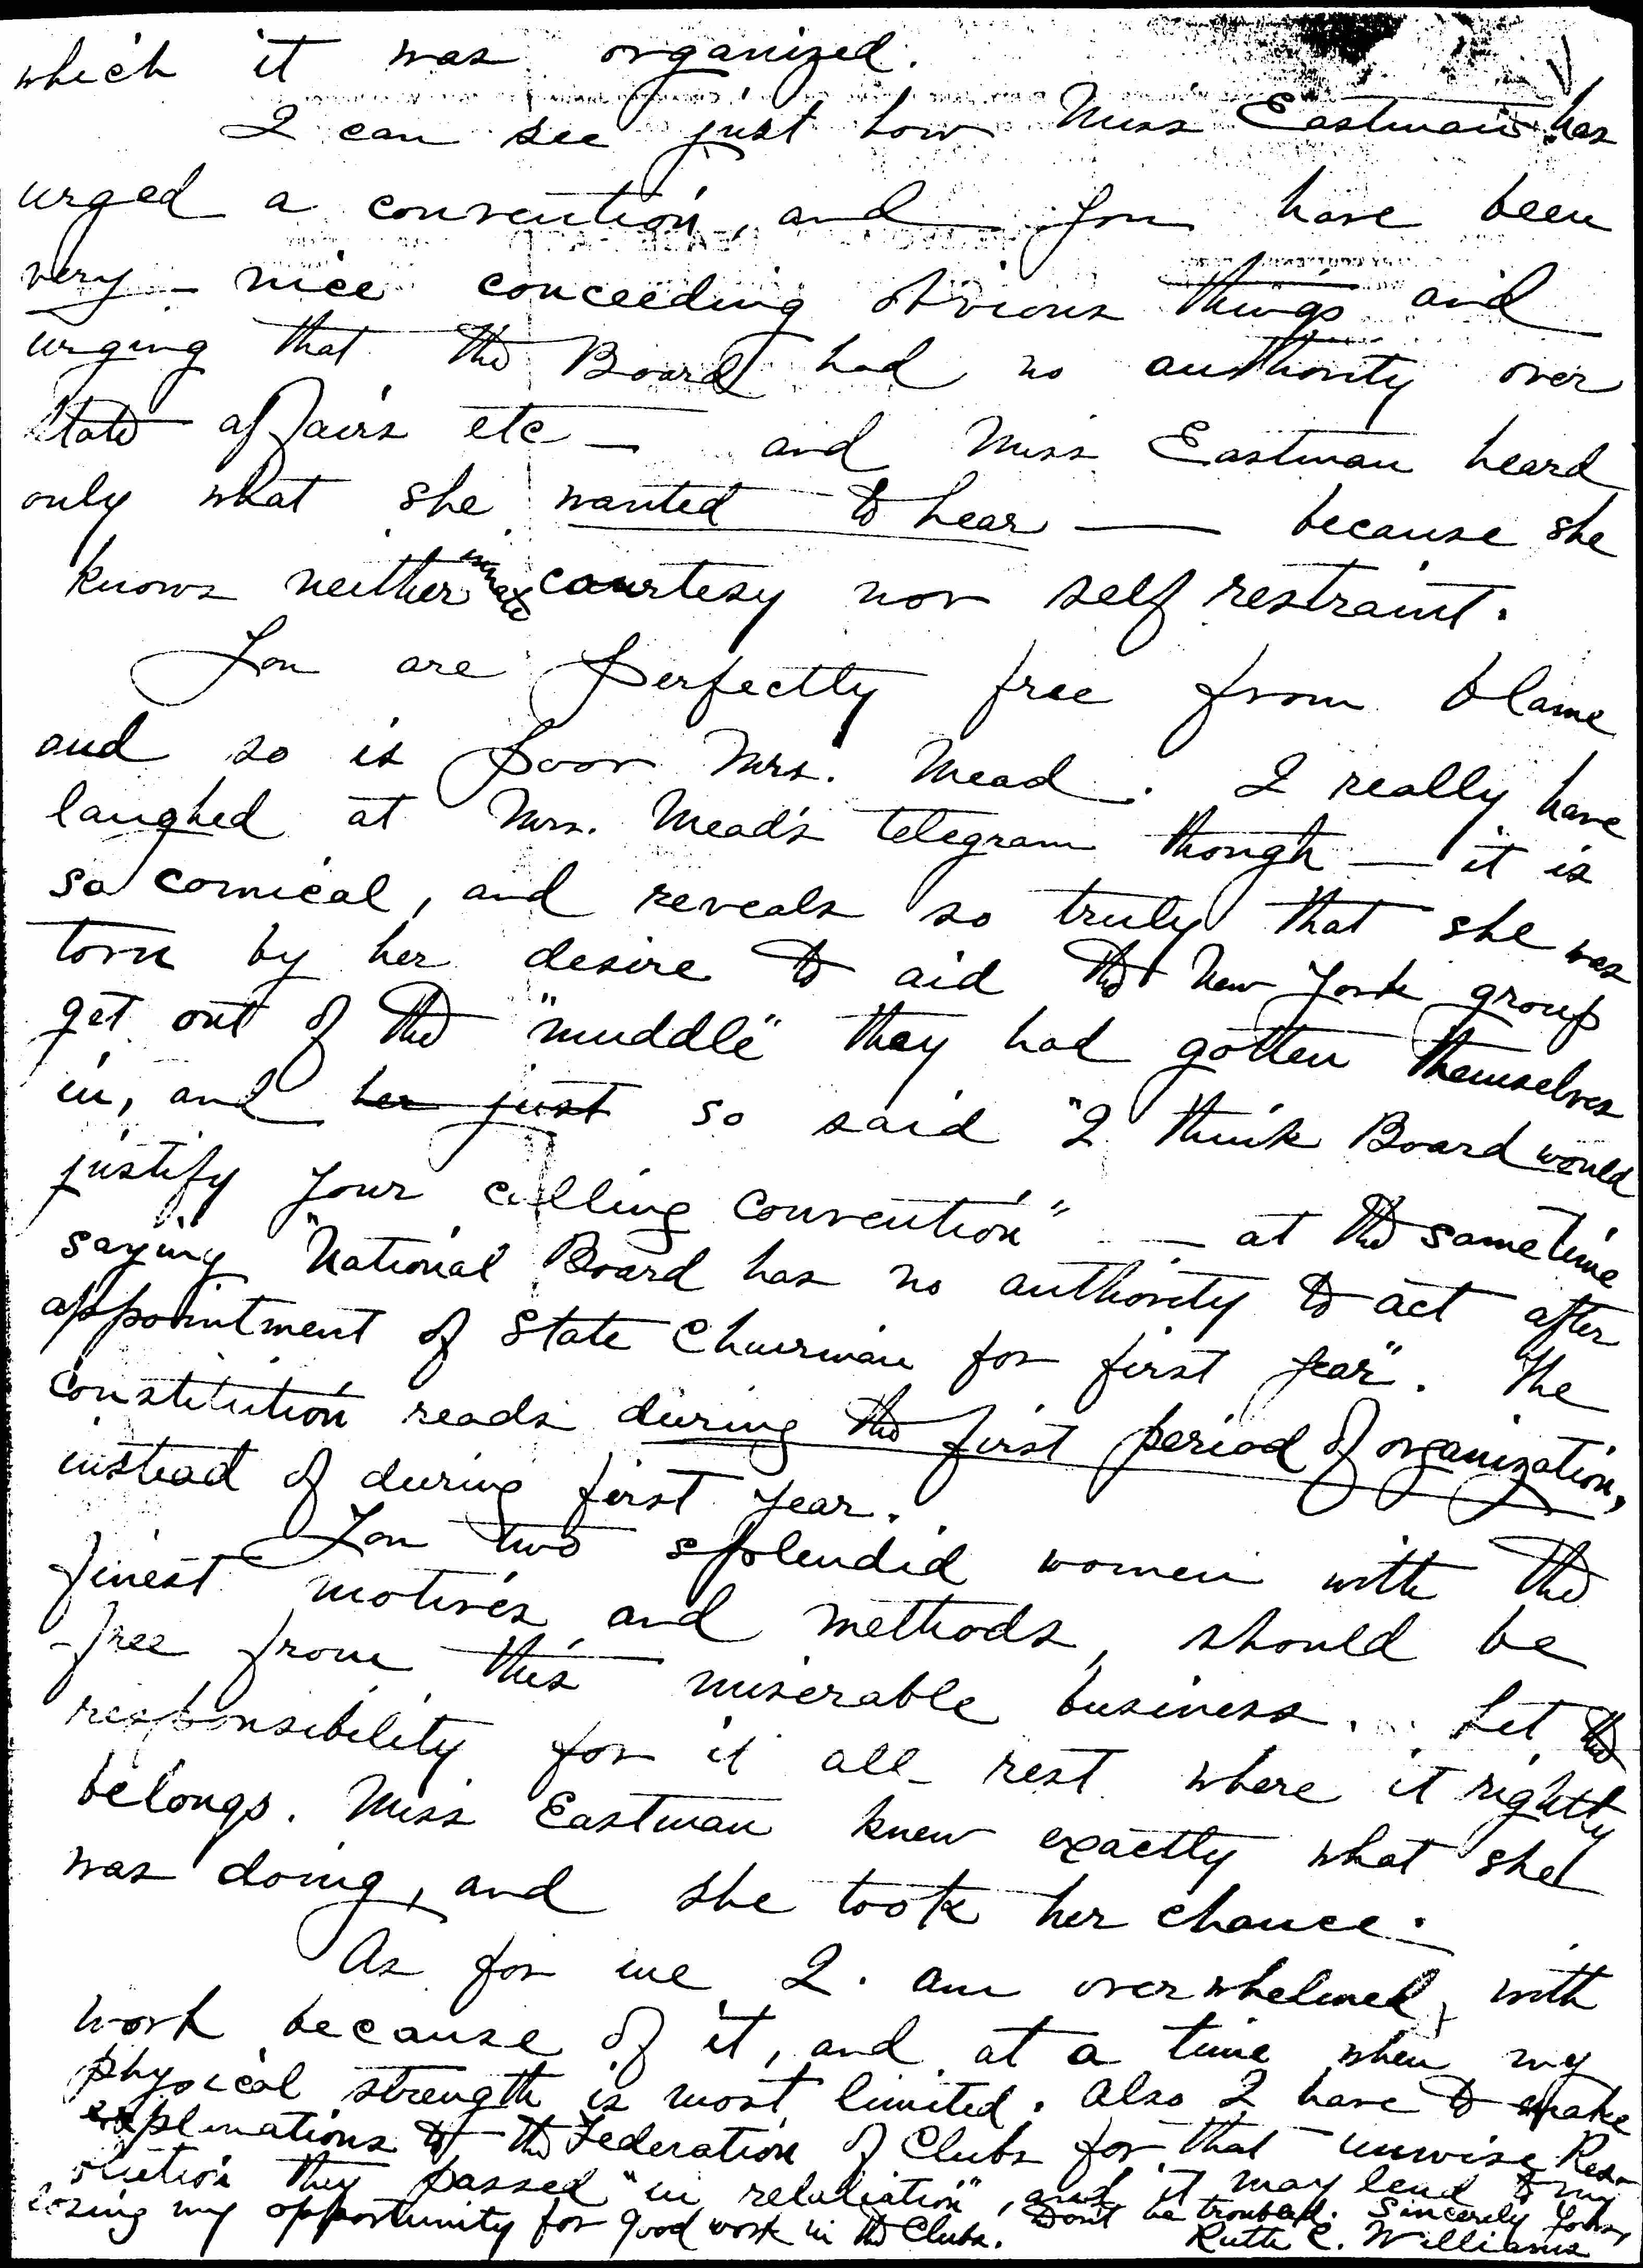 which it was organized.
I can see just how Miss Eastman has
urged a convention, and you have been
very nice conceeding obvious things and
urging that the Board had no authority over
state affairs etc — and Miss Eastman heard
only what she wanted to hear — because she
knows neither innate courtesy nor self restraint.
You are perfectly free from blame
and so is poor Mrs. Mead. I really have
laughed at Mrs. Mead's telegram though — it is
so comical, and reveals so truly that she was
torn by her desire to aid the New York group
get out of the "muddle" they had gotten themselves
in, and her just so said "I think Board would
justify your calling convention" — at the same time
saying "National Board has no authority to act after
appointment of State Chairman for first year". The
constitution reads during the first period of organization,
instead of during first year.
You two splendid women with the
finest motives and methods, should be
free from this miserable business. Let the
responsibility for it all rest where it rightly
belongs. Miss Eastman knew exactly what she
was doing, and she took her chance.
As for me I am overwhelmed with
work because of it, and at a time when my
physical strength is most limited. Also I have to make
explinations to the Federation of Clubs for that unwise Reso-
olution they passed "in relaliation", and it may lead to my
losing my opportunity for good work in the Clubs. Don't be troubled. Sincerely yours,
Ruth C. Williams